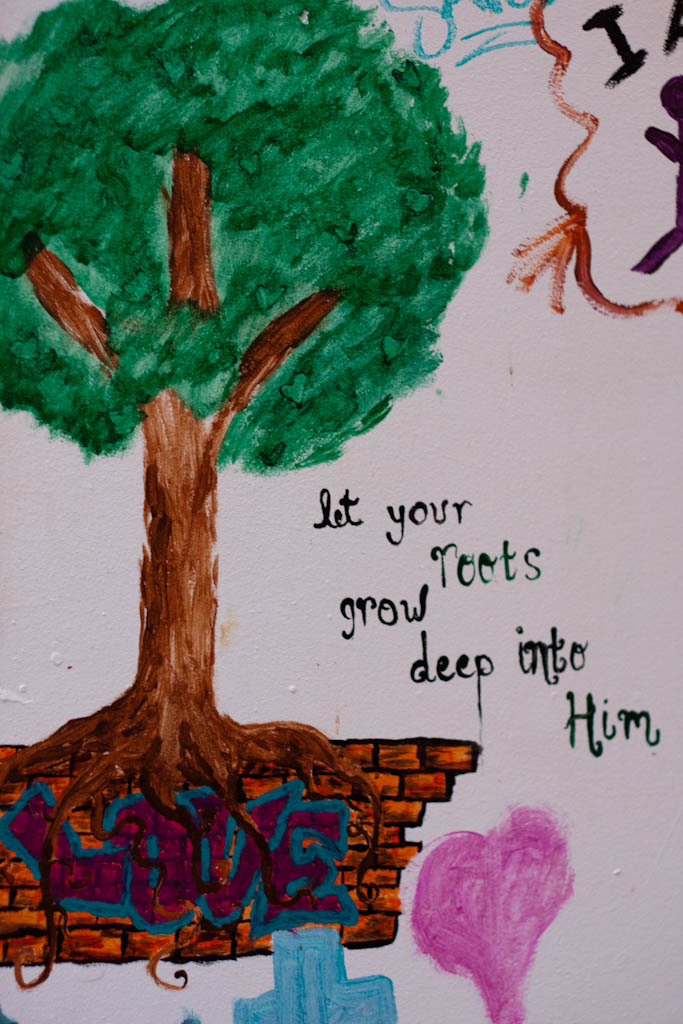 I
let your
roots
grow
deep into
Him
LOVE